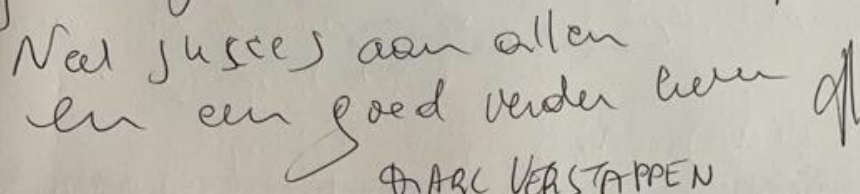 Veel susces aan allen
en een goed verder leven
MARC VERSTAPPEN